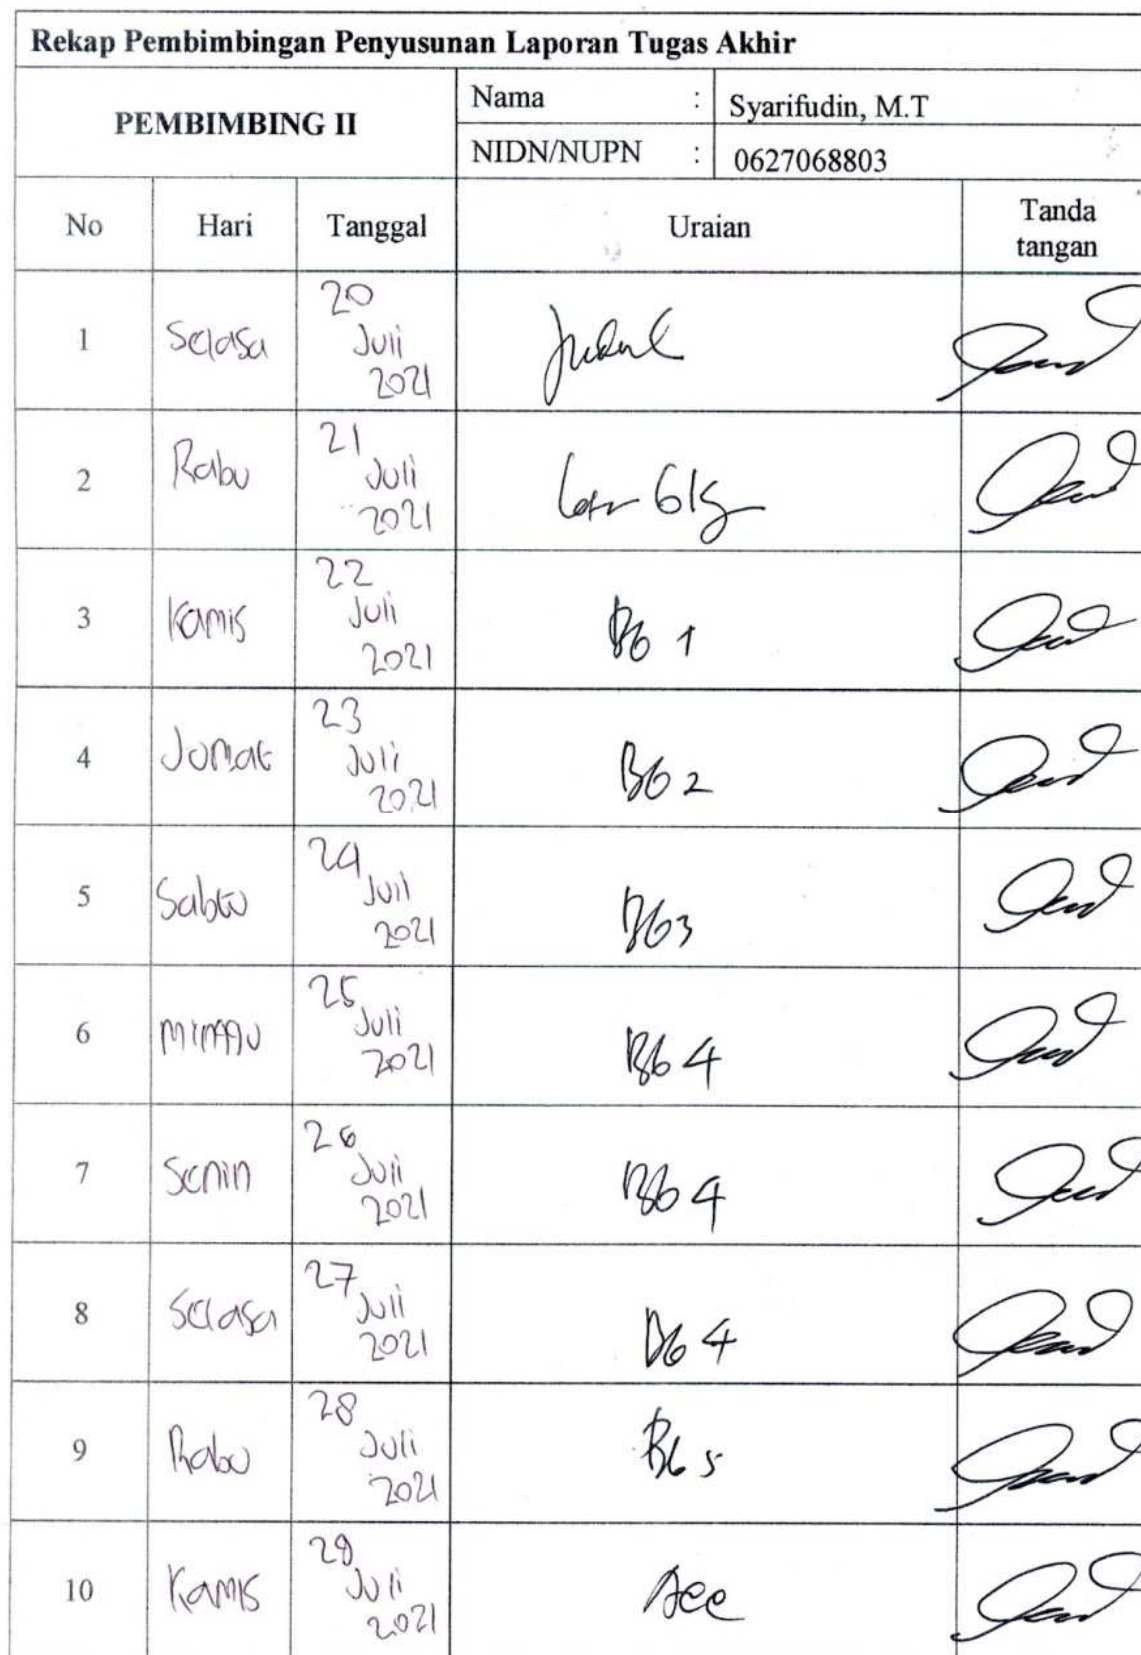 Rekap Pembimbingan Penyusunan Laporan Tugas Akhir
PEMBIMBING II
Nama : Syarifudin, M.T
NIDN/NUPN : 0627068803
No Hari Tanggal Uraian Tanda tangan
1 Selasa 20 Juli 2021 Judul
2 Rabu 21 Juli 2021
3 Kamis 22 Juli 2021 Bb 1
4 Jumat 23 Juli 2021 Bb 2
5 Sabtu 24 Juli 2021 Bb 3
6 Minggu 25 Juli 2021 Bb 4
7 Senin 26 Juli 2021 Bb 4
8 Selasa 27 Juli 2021 Bb 4
9 Rabu 28 Juli 2021 Bb 5
10 Kamis 29 Juli 2021 Acc